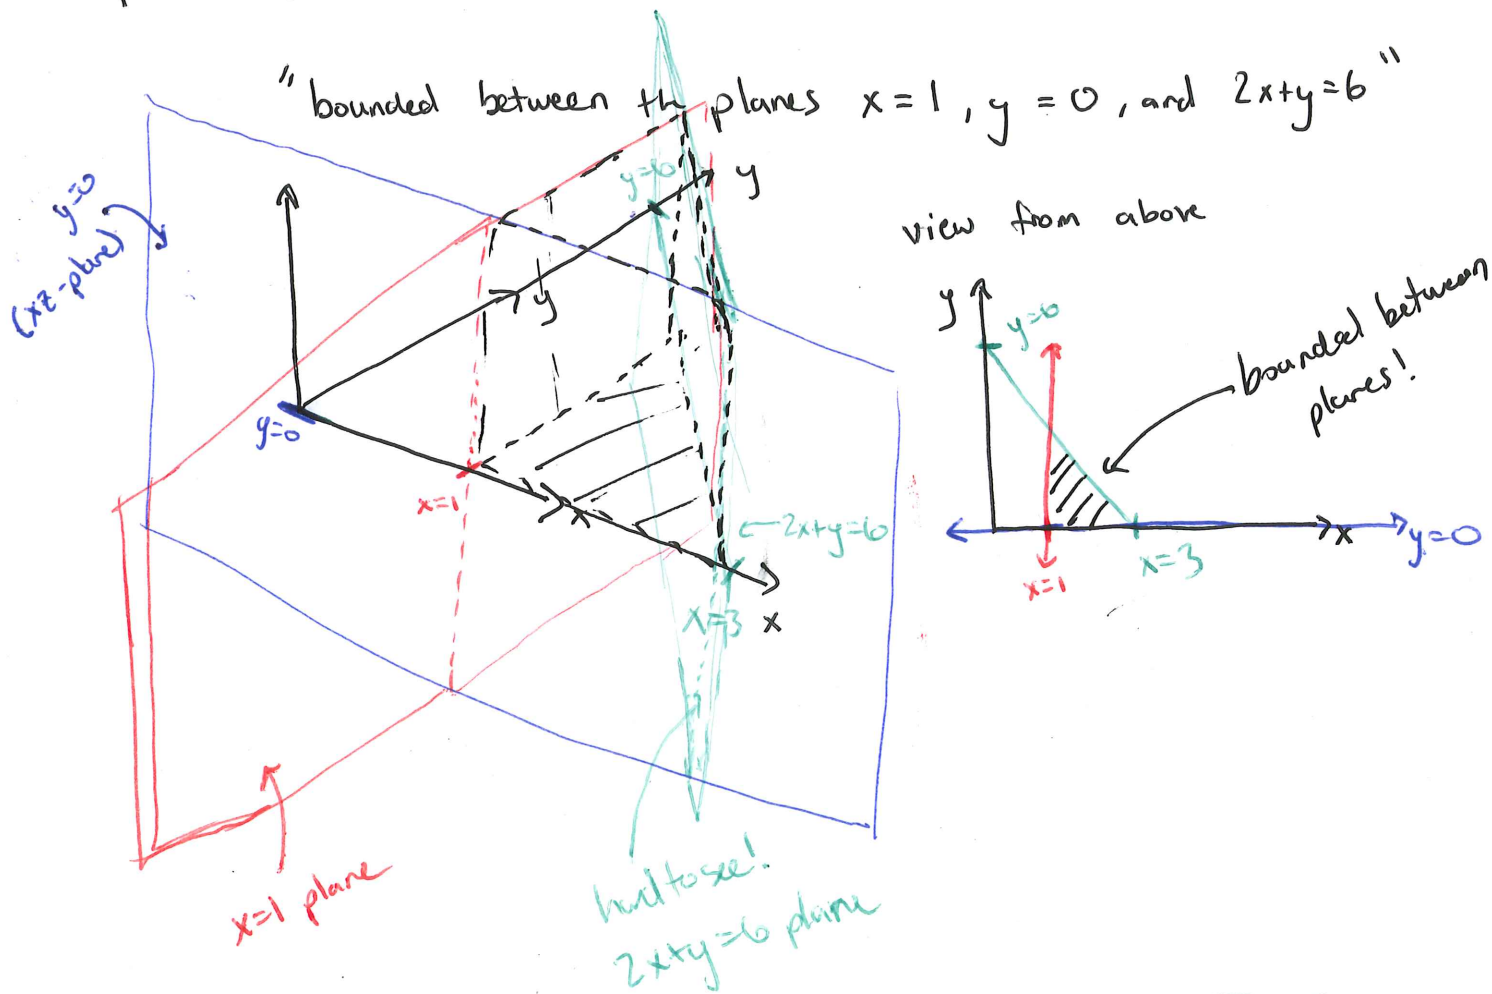 "bounded between th planes x=1, y=0, and 2x+y=6"
y=0
(xz-plane)
y=6
y
y
y=0
x=1
x
2x+y=6
x=3
x
x=1 plane
hard to see!
2x+y=6 plane
view from above
y
y=6
bounded between
planes!
x
y=0
x=1
x=3